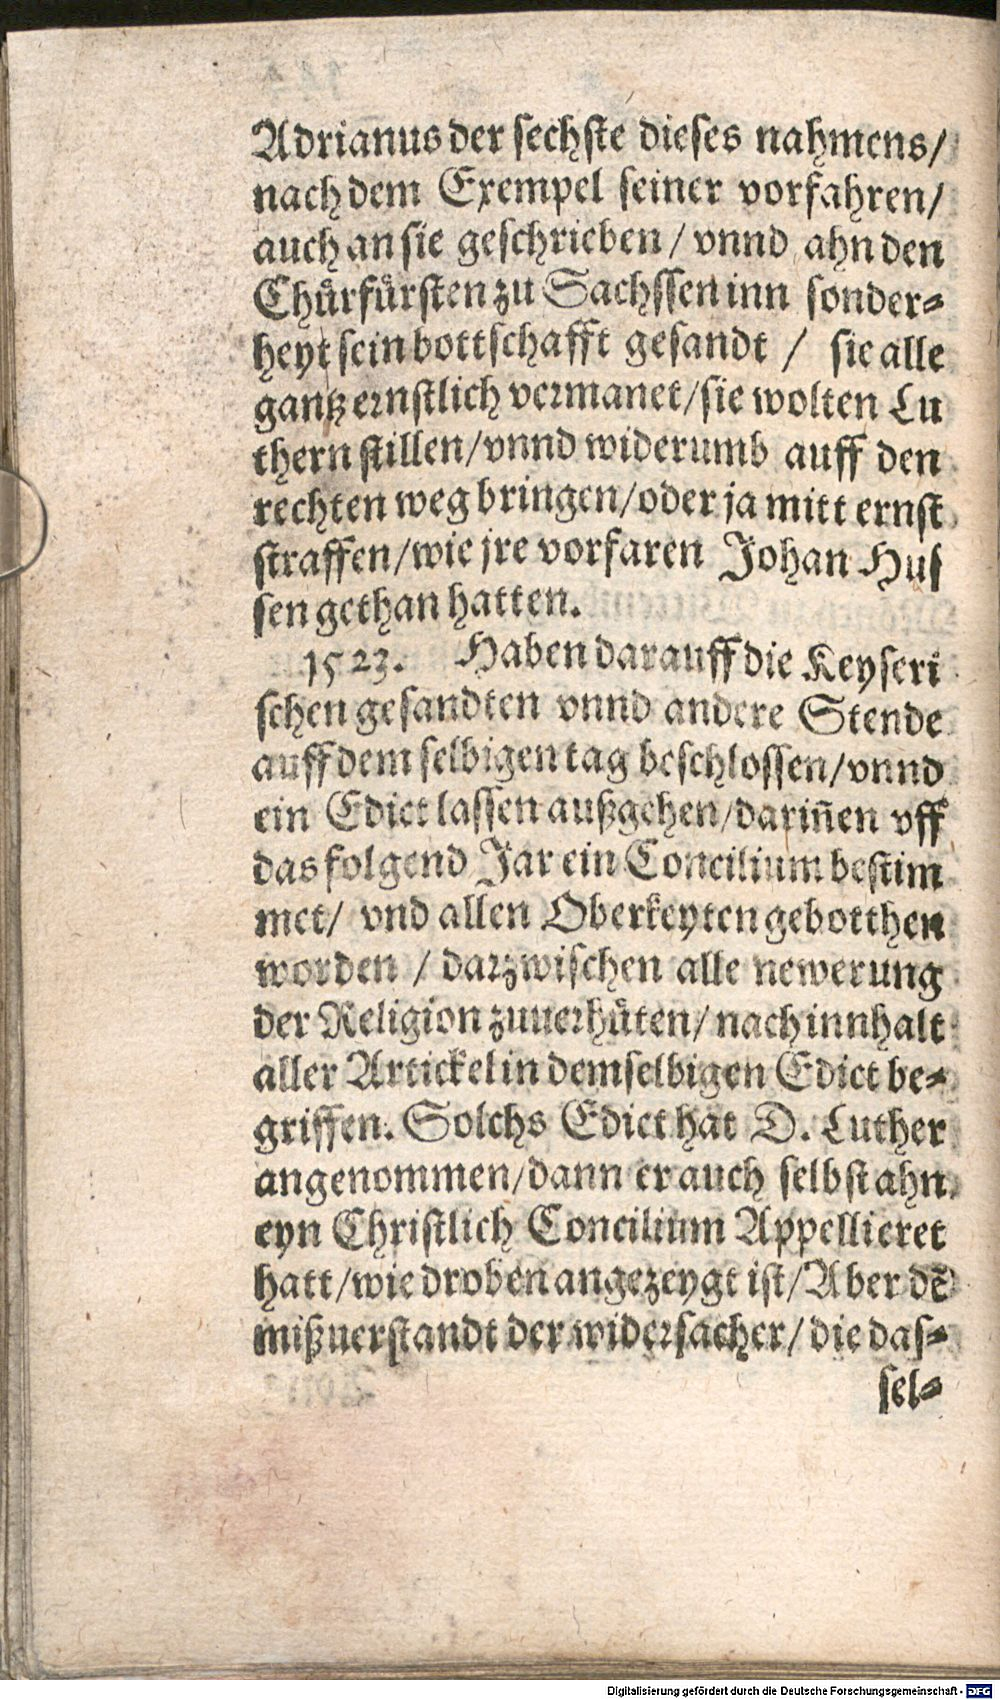 Adrianus der sechste dieses nahmens/
nach dem Exempel seiner vorfahren/
auch an sie geschrieben / vnnd ahn den
Chürfürsten zu Sachssen inn sonder-
heyt sein bottschafft gesandt / sie alle
gantz ernstlich vermanet/sie wolten Lu
thern stillen/vnnd widerumb auff den
rechten weg bringen/oder ja mitt ernst
straffen/wie jre vorfaren Johan Hus
sen gethan hatten.
1523. Haben darauff die Keyseri
schen gesandten vnnd andere Stende
auff dem selbigen tag beschlossen/vnnd
ein Edict lassen außgehen/dariñen vff
das folgend Jar ein Concilium bestim
met/ vnd allen Oberkeyten gebotthen
worden / darzwischen alle newerung
der Religion zuuerhüten/ nach innhalt
aller Artickel in demselbigen Edict be-
griffen. Solchs Edict hat D. Luther
angenommen/dann er auch selbst ahn
eyn Christlich Concilium Appellieret
hatt/wie droben angezeygt ist/Aber dẽ
mißuerstandt der widersacher/ die das-
sel-
Digitalisierung gefördert durch die Deutsche Forschungsgemeinschaft - DFG